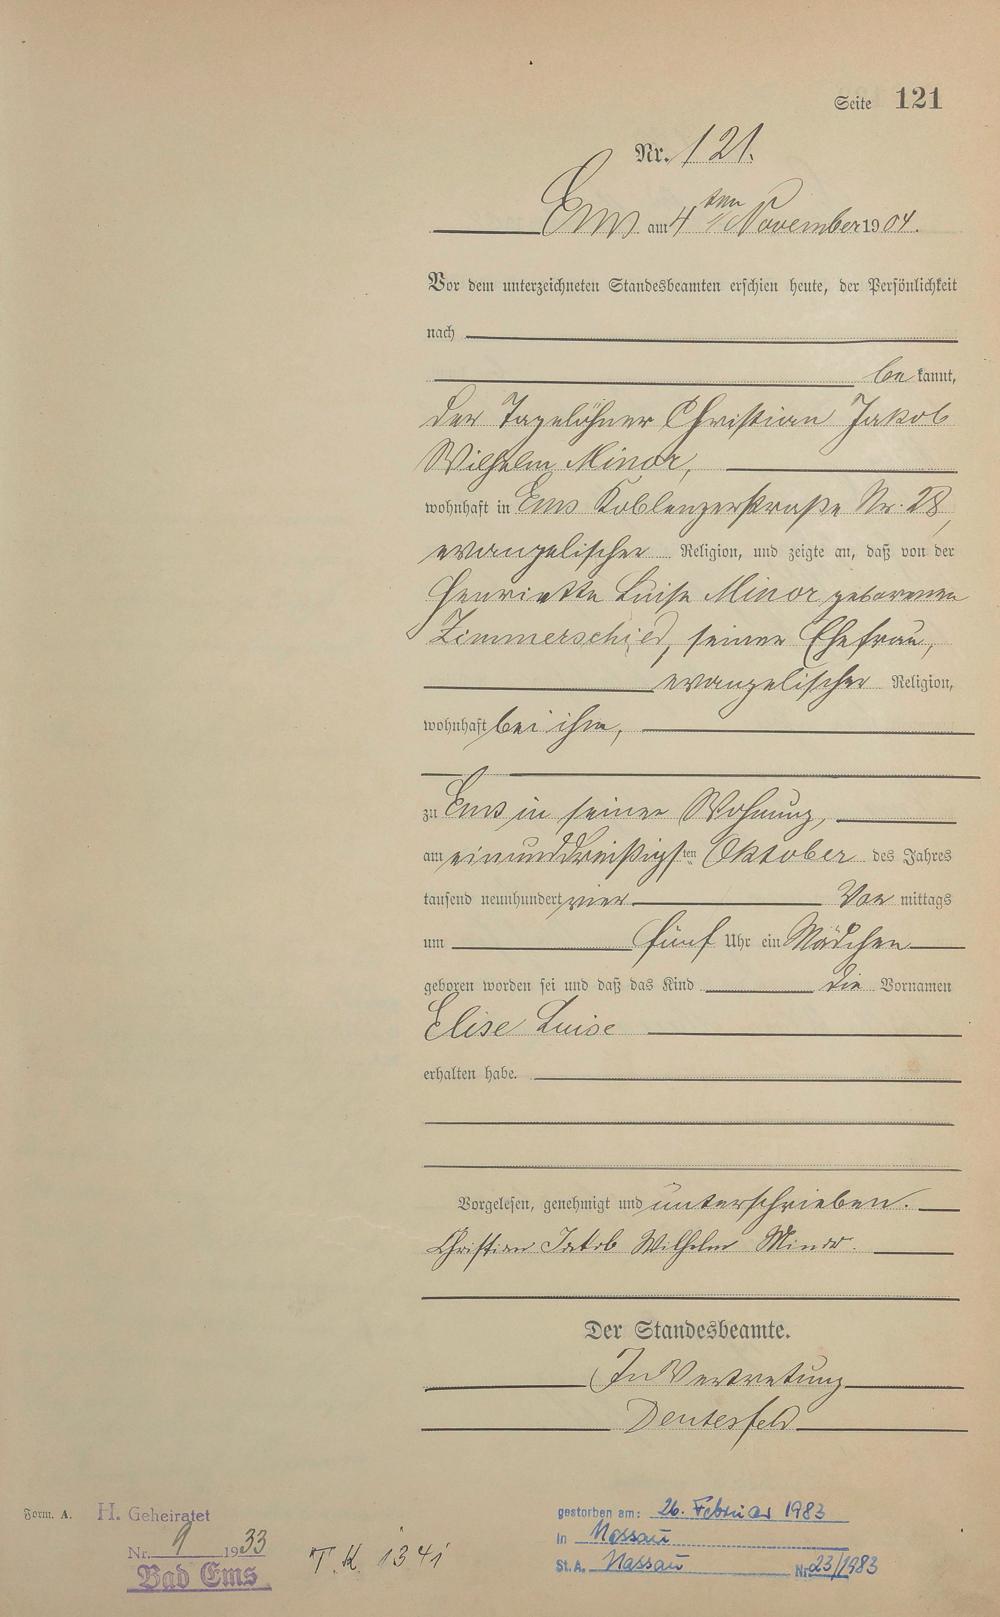 Seite 121
Nr. 121.
Ems am 4ten November 1904.
Vor dem unterzeichneten Standesbeamten erschien heute, der Persönlichkeit
nach
bekannt,
der Tagelöhner Christian Jakob
Wilhelm Minor,
wohnhaft in Ems Koblenzerstraße Nr. 28,
evangelischer Religion, und zeigte an, daß von der
Henriette Luise Minor geborenen
Zimmerschied, seiner Ehefrau,
evangelischer Religion,
wohnhaft bei ihm,
zu Ems in seiner Wohnung,
am einunddreißigsten Oktober des Jahres
tausend neunhundert vier Vor mittags
um fünf Uhr ein Mädchen
geboren worden sei und daß das Kind die Vornamen
Elise Luise
erhalten habe.
Vorgelesen, genehmigt und unterschrieben.
Christian Jakob Wilhelm Minor.
Der Standesbeamte.
In Vertretung
Deutesfeld
Form. A.
H. Geheiratet
Nr. 9 1933
Bad Ems
T. K. 1341
gestorben am: 26. Februar 1983
in Nassau
St.A. Nassau Nr. 23/1983